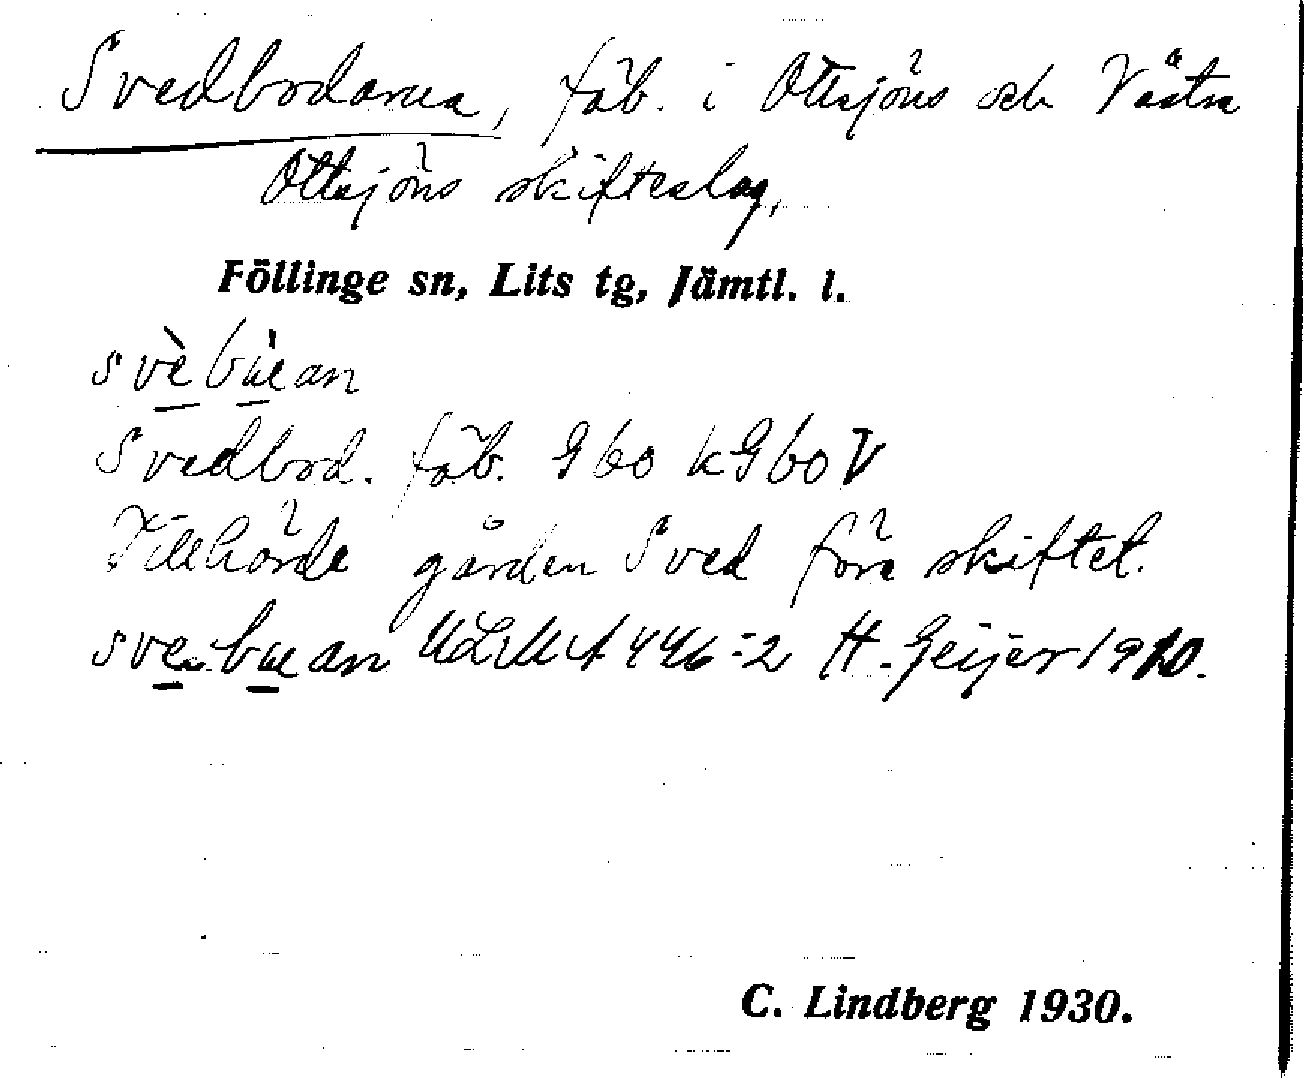 Svedbodarna, fäb. i Ottsjöns och Västra
Ottsjöns skifteslag,
Föllinge sn, Lits tg, Jämtl. l.
svèbùean
Svedbod. fäb. G60 kG60V
Tillhörde gården Sved före skiftet.
446:2 H. Geijer 1910.
C. Lindberg 1930.